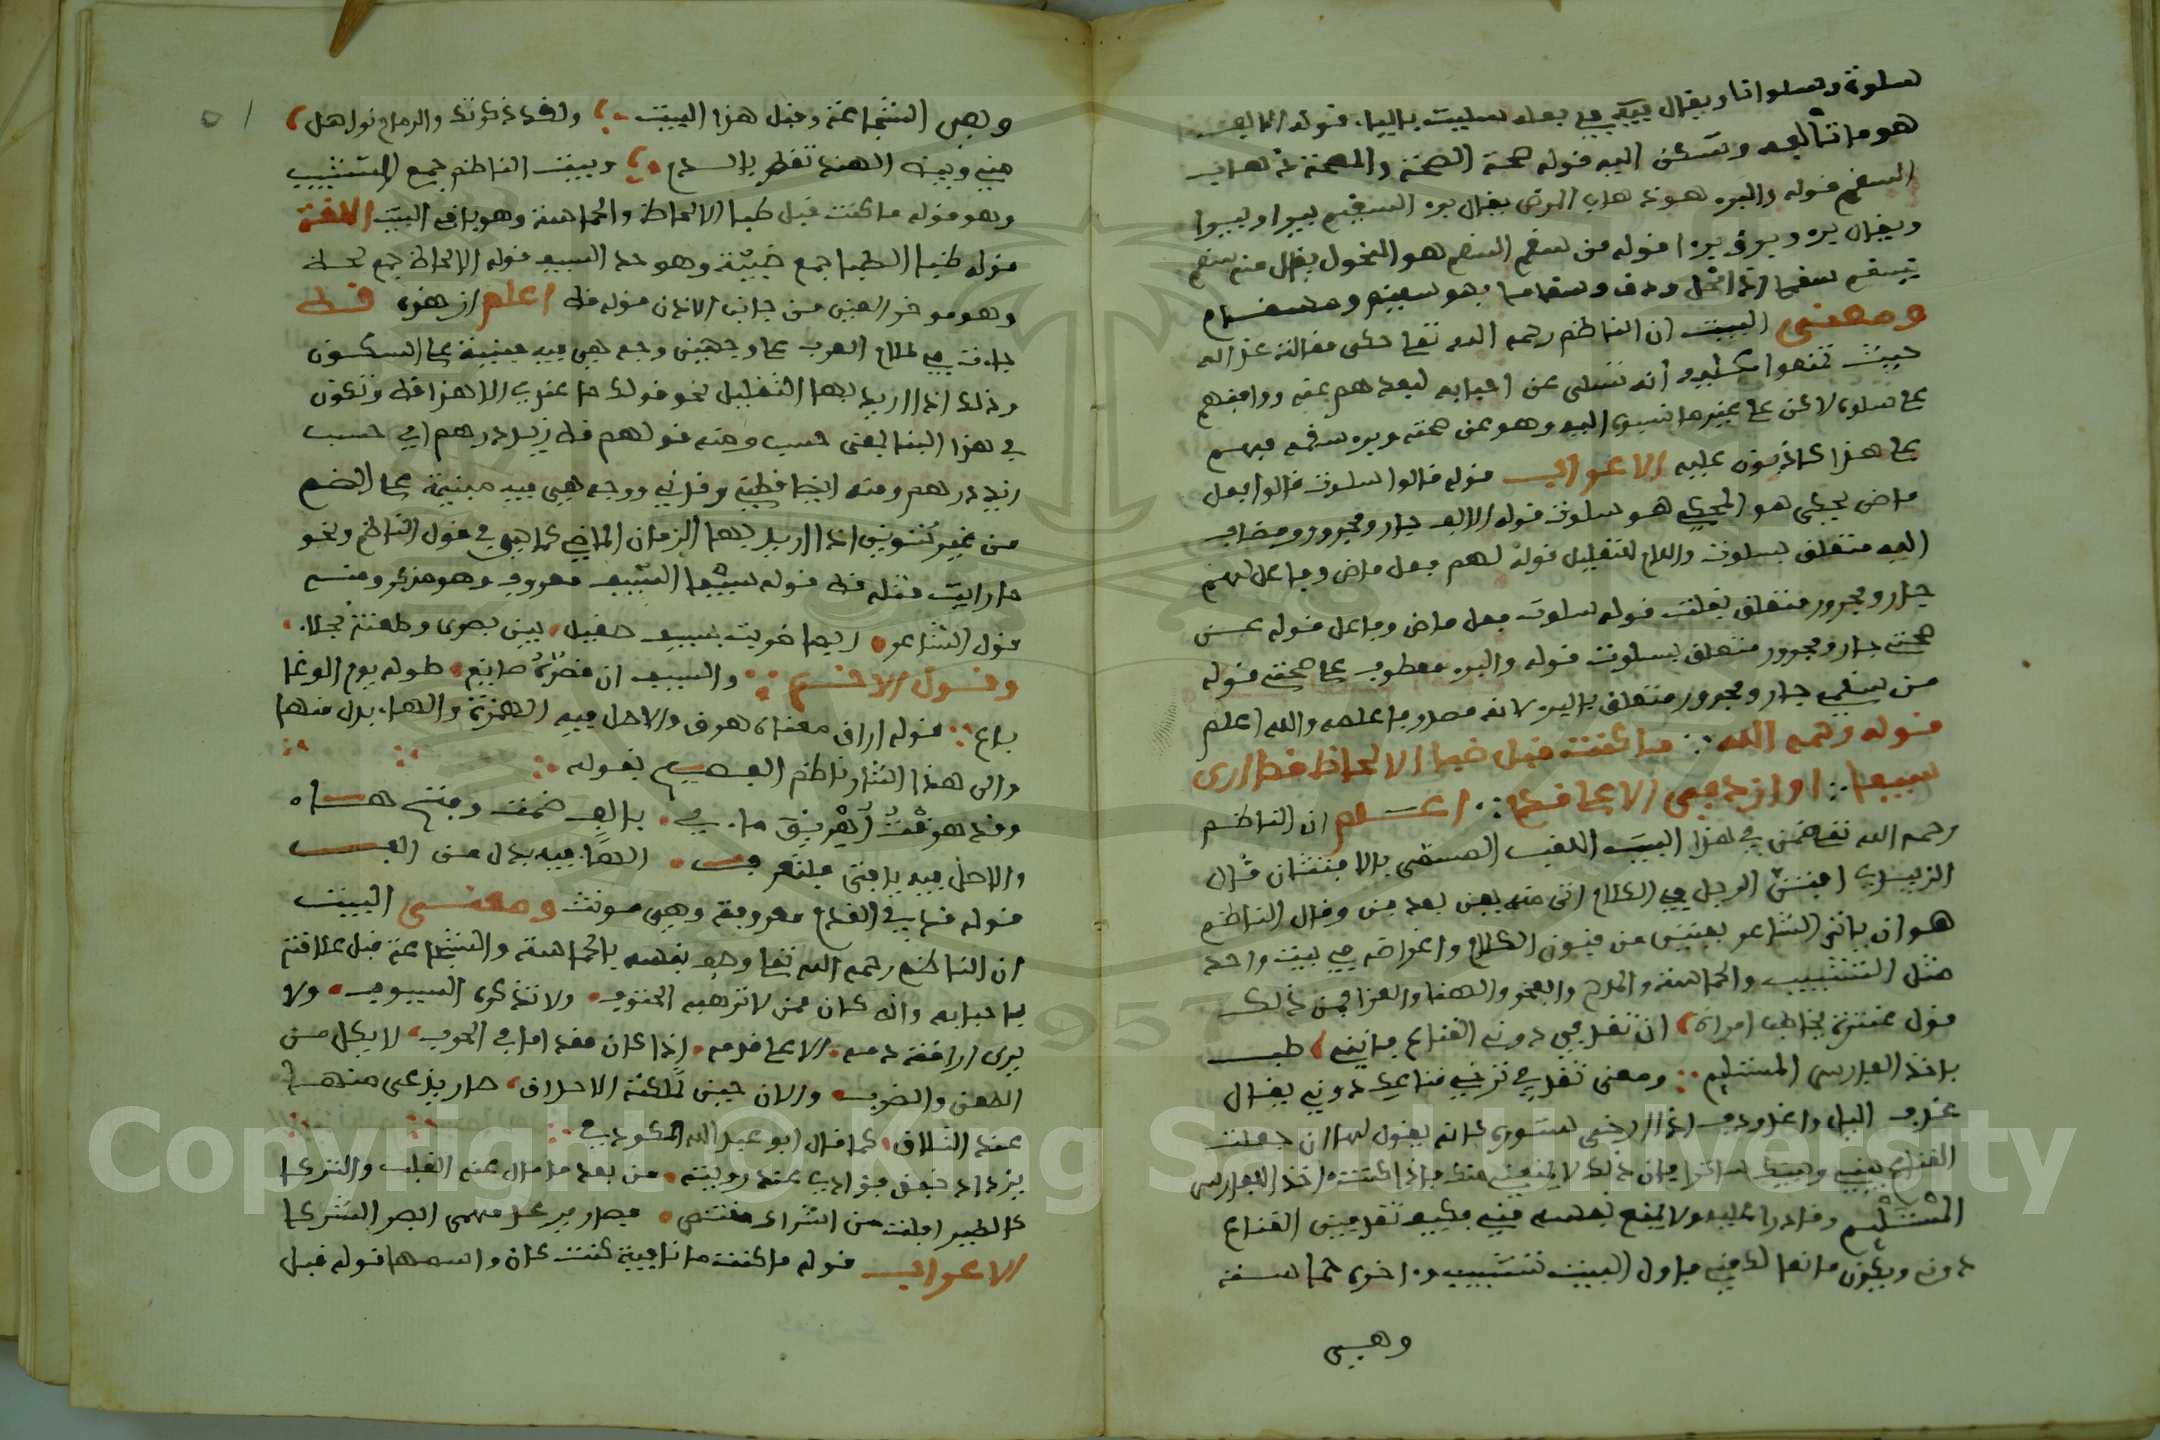 سلوة وسلوانا ويقال فيه بعد سليت باليا. قوله الالف
هو ما تألفه وتسكن اليه قوله صحة الصحة والمصحة ذهاب
السقم قوله والبرء هو ذهاب المرض يقال برء السقيم يبرا ويبروا
ويقال برء وبرؤ برءا قوله من سقم السقم هو النحول يقال منه سقم
يسقم سقما اذا نحل ودق وسقاما فهو سقيم ومسقام
ومعنى البيت ان الناظم رحمه الله تعا حكى مقالة عذاله
حيث انه تسلى عن احبابه لبعدهم عنه ووافقهم
على سلوه لاكن على غير ما نسبوه اليه وهو عن صحته وبرء سقمه فهم
على هذا كاذبون عليه الاعراب قوله قالوا سلوت قالوا فعل
ماض يحكى هو المحكي هو سلوت قوله الالف جار ومجرور ومضاف
اليه متعلق بسلوت واللام للتعليل قوله لهم فعل ماض وفاعل لهم
جار ومجرور متعلق بقلت قوله سلوت فعل ماض وفاعل قوله عن
صحتي جار ومجرور متعلق بسلوت قوله والبرء معطوف على صحتي قوله
من سقمي جار ومجرور متعلق بالبرء لانه مصدر والله اعلم
قوله رحمه الله ما كنت قبل ضبا الالحاظ قط ارى
سيفا اراق دمي الا على قدم اعلم ان الناظم
رحمه الله تعا ضمن في هذا البيت اللقب المسمى بالافتنان قال
الزبيدي افتن الرجل في الكلام اتى منه بفن بعد فن وقال الناظم
هو ان ياتي الشاعر بفنين من فنون الكلام واغراضه في بيت واحد
مثل التشبيب والحماسة والمدح والفخر والهنا والعزا فمن ذلك
قول عنترة يخاطب امراة ان تغدفي دوني القناع فانني طب
باخذ الفارس المستلئم ومعنى تغدفي ترخي قناعك دوني يقال
غدف اليل واغدودف اذا ارخى ستوره كانه يقول لها ان جعلت
القناع بيني وبينك ساترا فان ذلك لا يمنعني منك فاذا كنت اخذ الفارس
المستلئم وقادرا عليه ولا يمنع نفسه مني فكيف تغدفين القناع
دوني ويكون مانعا لك مني فاول البيت تشبيب واخره حماسة
وهي
وهي الشجاعة وقبل هذا البيت ولقد ذكرتك والرماح نواهل
مني وبيض الهند تقطر بالدم وبيت الناظم جمع التشبيب
وهو قوله ما كنت قبل ظبا الالحاظ والحماسة وهو باقي البيت اللغة
قوله ظبا الظبا جمع ظبية وهو حد السيف قوله الالحاظ جمع لحظ
وهو موخر العين من جانب الاذن قوله قط اعلم ان هذه قط
جاءت في كلام العرب على وجهين وجه هي فيه مبنية على السكون
وذلك اذا اريد بها التقليل نحو قولك ما عندي الا هذا قط وتكون
في هذا البنا بمعنى حسب ومنه قولهم قط زيد درهم اي حسب
زيد درهم ومنه ايضا قطني وقدني ووجه هي فيه مبنية على الضم
من غير تنوين اذا اريد بها الزمان الماضي كما هي في قول الناظم ونحو
ما رايت مثله قط قوله سيفا السيف معروف وهو مذكر ومنه
قول الشاعر ربما ضربت بسيف صقيل بين بصرى وطعنة نجلا
وقول الاخر والسيف ان قصره صانع طوله يوم الوغا
باع قوله اراق معناه هرق والاصل فيه الهمزة والهاء بدل منها
والى هذا اشار ناظم الفصيح بقوله
وقد هرقت اهريق ما. في بالف ضمت وفتح هاه
والاصل فيه يا فتى فلتعرف الهاء فيه بدل من الف
قوله قدم في القدم معروفة وهي مونث ومعنى البيت
ان الناظم رحمه الله تعا وصف نفسه بالحماسة والشجاعة قبل علاقته
باحبابه وانه كان ممن لا ترهبه الحتوف ولا تذكره السيوف ولا
يرى اراقة دمه الا على قدمه اذا كان مقداما في الحرب لا يكل من
الطعن والضرب والان حين تملكته الاحداق صار يدعى منها
عند التلاق كما قال ابو عبد الله المكودي
يزداد خفق فؤادي عند رويته من بعد ما مال عنه القلب والتركا
كالطير افلت من اشراك مقتنص فصار يرعد مهمى ابصر الشركا
الاعراب قوله ما كنت ما نافية كنت كان واسمها قوله قبل